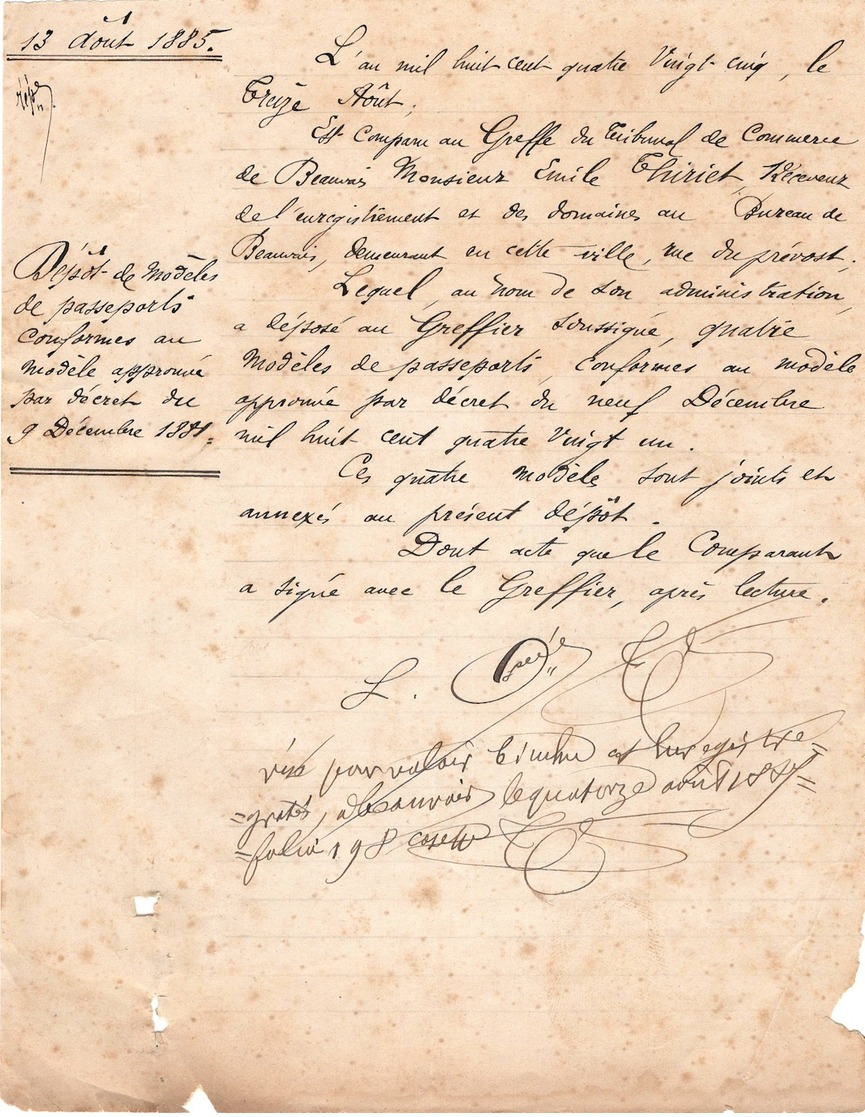 13 Août 1885.
Dépôt de modèles
de passeports
conformes au
modèle approuvé
par décret du
9 Décembre 1881.
L'an mil huit cent quatre Vingt cinq, le
Treize Août,
Est Comparu au Greffe du Tribunal de Commerce
de Beauvais Monsieur Emile Thiriet, Receveur
de l'enregistrement et des domaines au Bureau de
Beauvais, demeurant en cette ville, rue du prévost;
Lequel, au nom de son administration,
a déposé au Greffier soussigné, quatre
Modèles de passeports, conformes au modèle
approuvé par décret du neuf Décembre
mil huit cent quatre Vingt un.
Ces quatre modèles sont joints et
annexés au présent dépôt.
Dont acte que le Comparant
a signé avec le Greffier, après lecture.
visé pour valoir timbre et Enregistré
gratis, à beauvais le quatorze août 1885
folio 198 case